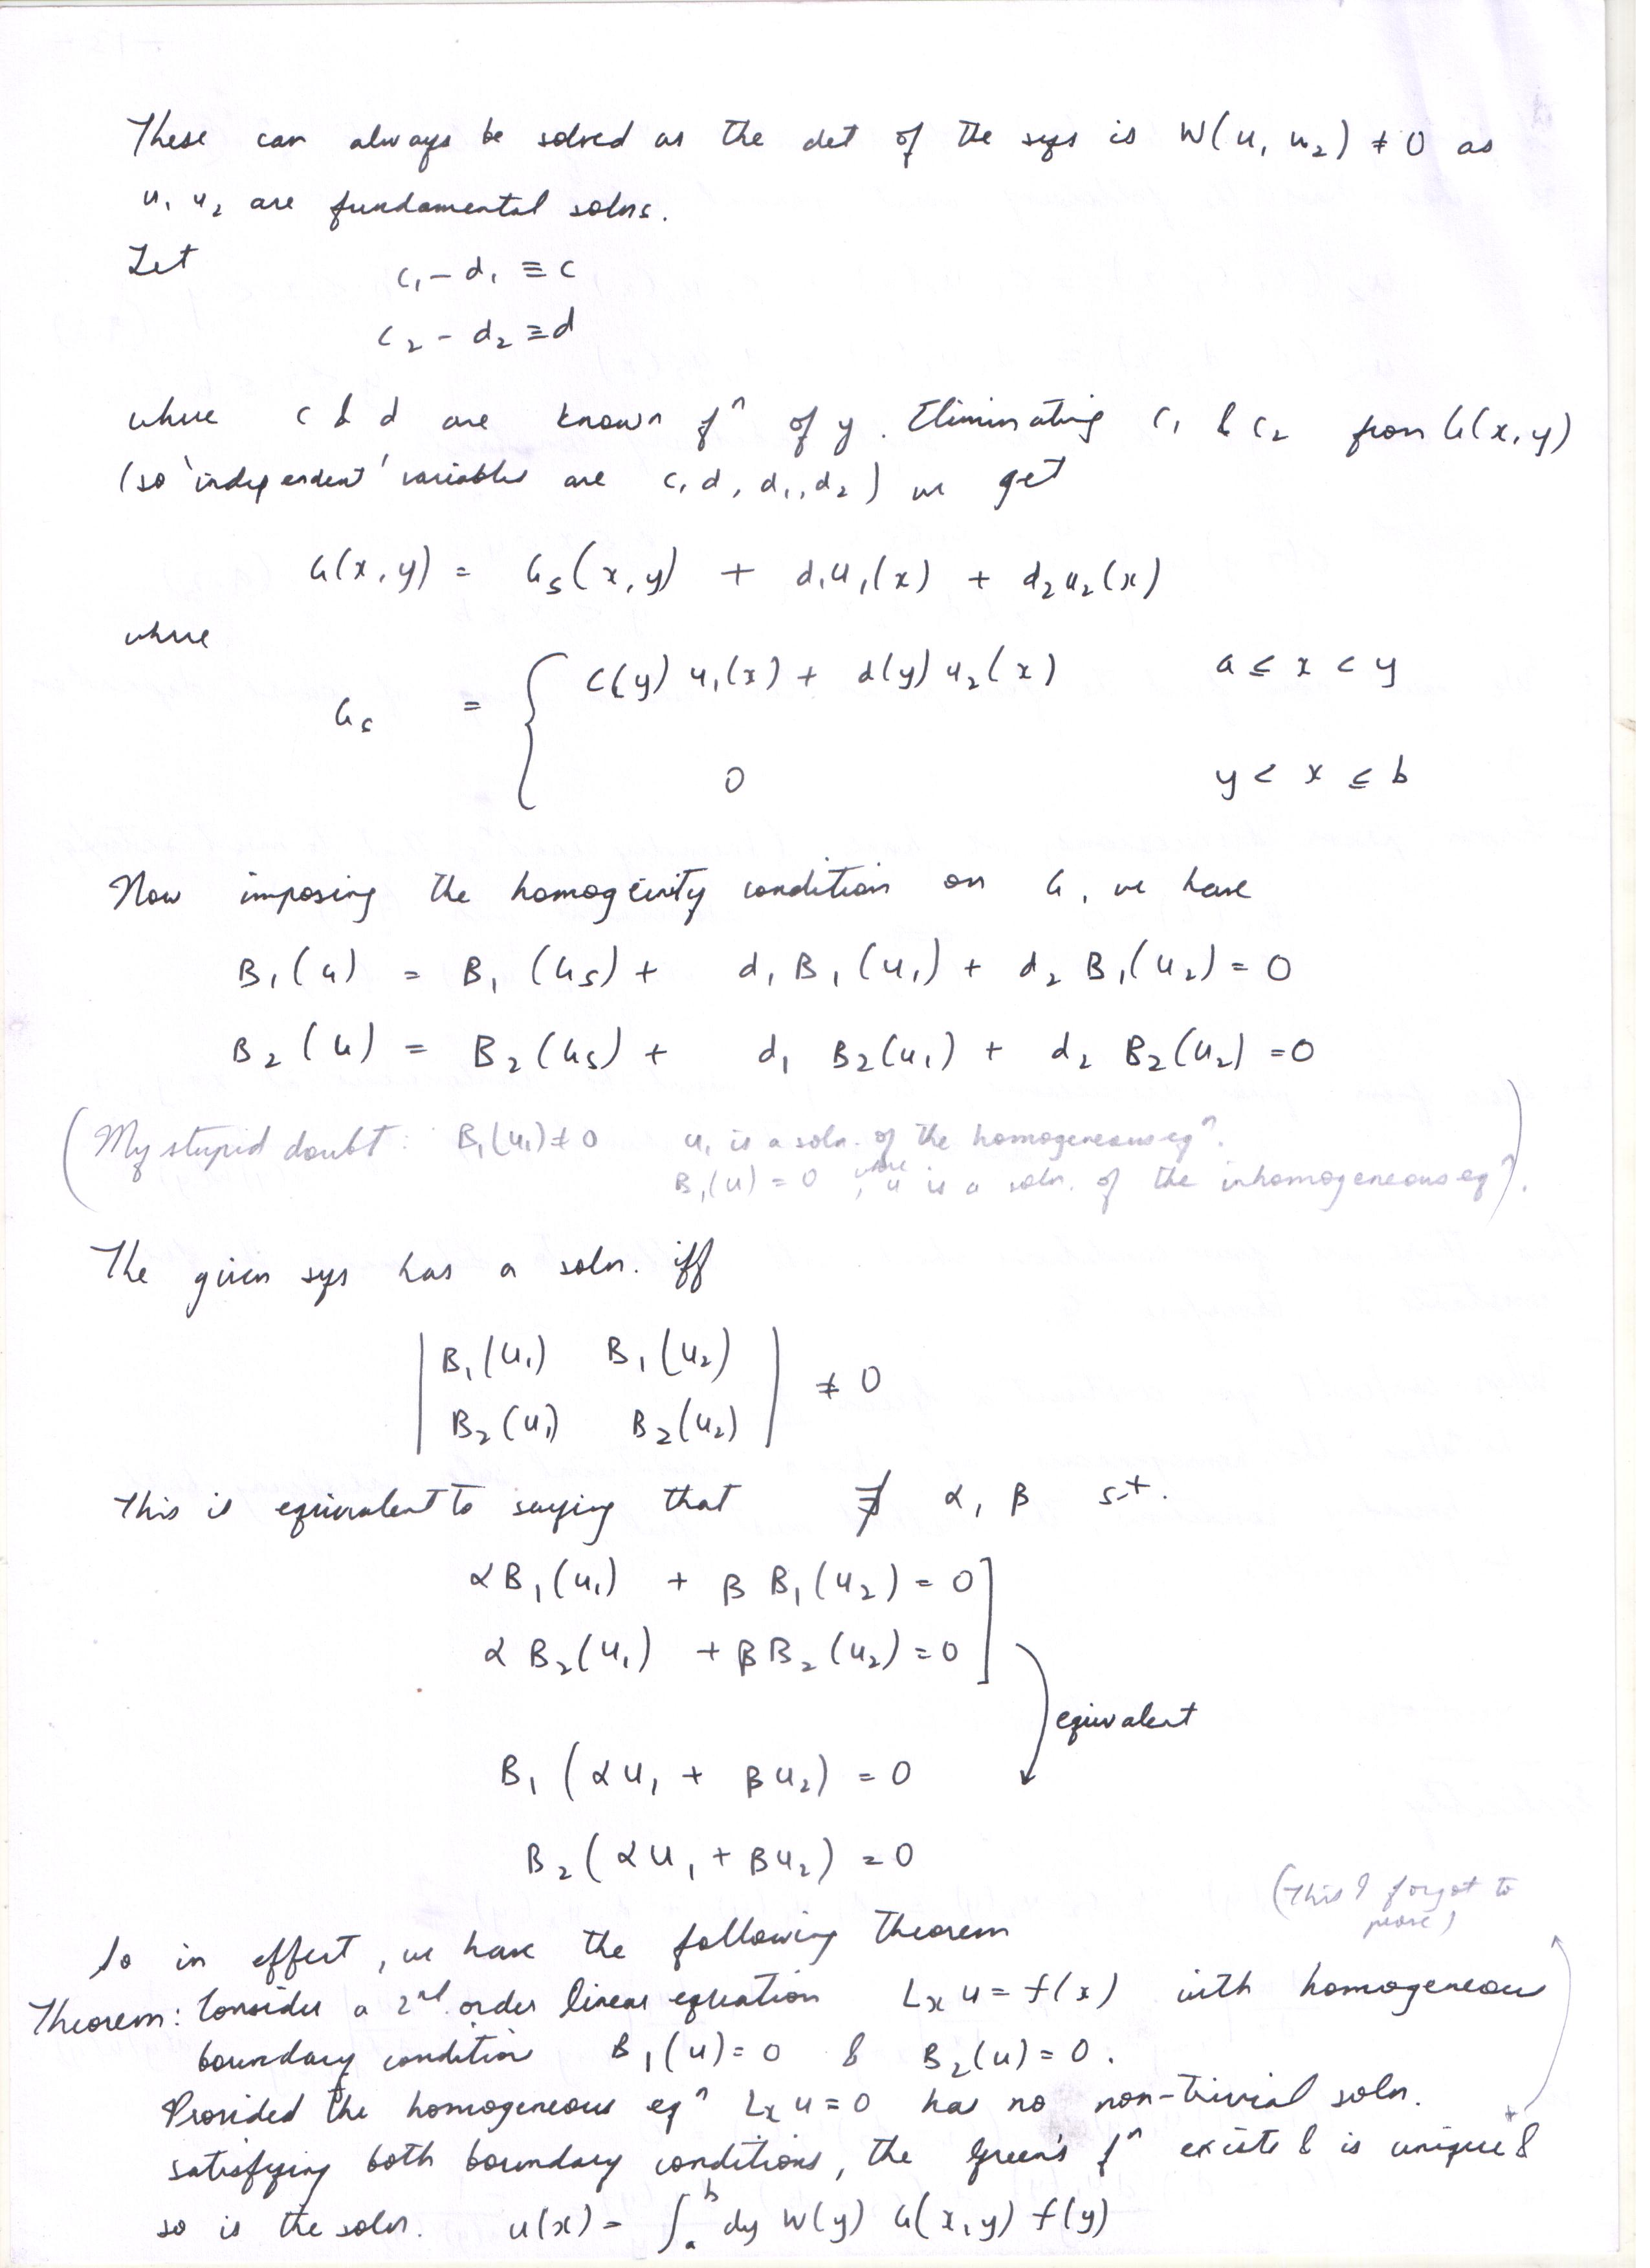 These can always be solved as the det of the sys is W(u₁ u₂) ≠ 0 as
u₁ u₂ are fundamental solns.
Let c₁ - d₁ ≡ c
c₂ - d₂ ≡ d
where c & d are known fⁿ of y. Eliminating c₁ & c₂ from G(x,y)
(so 'independent' variables are c, d, d₁, d₂) we get
G(x,y) = G_s(x,y) + d₁u₁(x) + d₂u₂(x)
where
G_s = { c(y) u₁(x) + d(y) u₂(x) a ≤ x < y
0 y < x ≤ b
Now imposing the homogeinity condition on G, we have
B₁(G) = B₁(G_s) + d₁ B₁(u₁) + d₂ B₁(u₂) = 0
B₂(G) = B₂(G_s) + d₁ B₂(u₁) + d₂ B₂(u₂) = 0
(My stupid doubt: B₁(u₁) ≠ 0 u₁ is a soln. of the homogeneous eqⁿ.
B₁(u) = 0, where u is a soln. of the inhomogeneous eqⁿ).
The given sys has a soln. iff
| B₁(u₁) B₁(u₂) |
| B₂(u₁) B₂(u₂) | ≠ 0
This is equivalent to saying that ∄ α, β s.t.
αB₁(u₁) + βB₁(u₂) = 0 ]
αB₂(u₁) + βB₂(u₂) = 0 ]
equivalent
B₁(αu₁ + βu₂) = 0
B₂(αu₁ + βu₂) = 0
(This I forgot to
prove)
So in effect, we have the following theorem
Theorem: Consider a 2nd order linear equation Lₓu = f(x) with homogeneous
boundary condition B₁(u) = 0 & B₂(u) = 0.
Provided the homogeneous eqⁿ Lₓu = 0 has no non-trivial soln.
satisfying both boundary conditions, the Green's fⁿ exists & is unique &
so is the soln. u(x) = ∫ₐᵇ dy W(y) G(x,y) f(y)